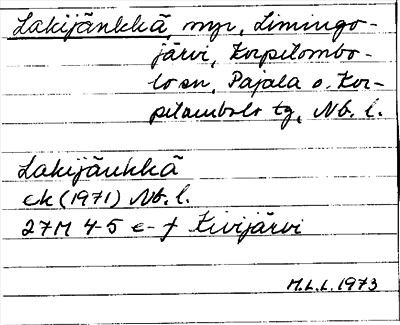 Lakijänkkä, myr, Limingo-
järvi, Korpilombo-
lo sn, Pajala o. Kor-
pilombolo tg, Nb. l.
Lakijänkkä
ek (1971) Nb. l.
27M 4-5 e-f Kivijärvi
M.L.L. 1973